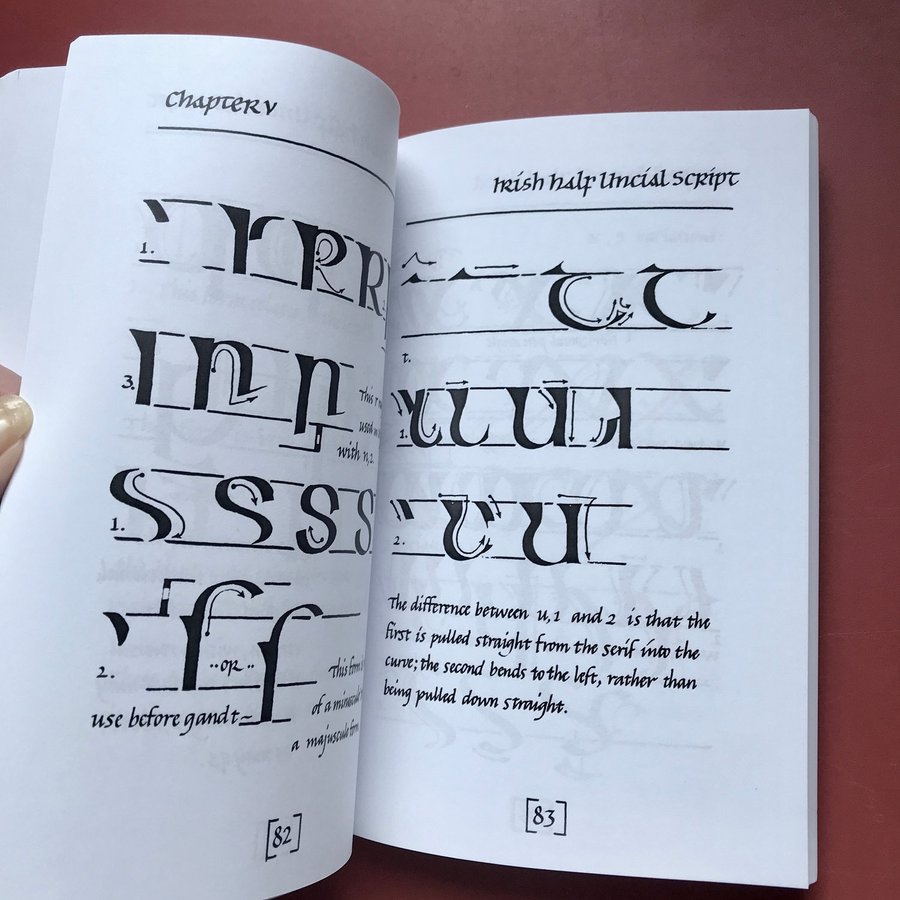 Chapter V
1.
3.
This r
used
with n, 2.
1.
2.
··or··
This form
of a minuscule
use before g and t~
a majuscule
[82]
Irish Half Uncial Script
t.
1.
2.
The difference between u, 1 and 2 is that the
first is pulled straight from the serif into the
curve; the second bends to the left, rather than
being pulled down straight.
[83]